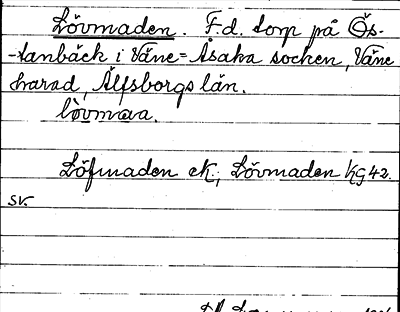 Lövmaden. F.d. torp på Ös-
-tanbäck i Väne-Åsaka socken, Väne
harad, Älfsborgs län.
lövmaa.
Löfmaden ek., Lövmaden kg 42.
sv.